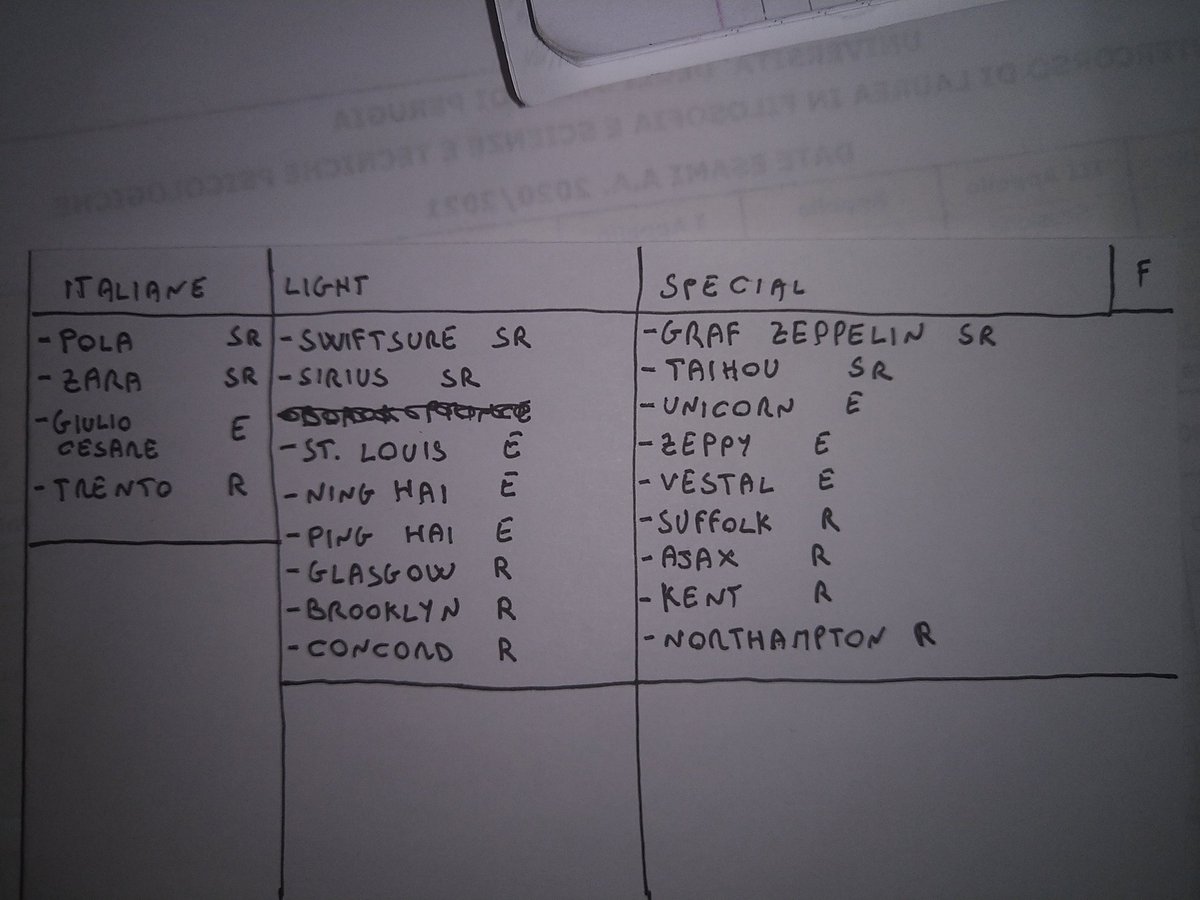 UNIVERSITA' DEGLI STUDI DI PERUGIA
INTERCORSO DI LAUREA IN FILOSOFIA E SCIENZE E TECNICHE PSICOLOGICHE
DATE ESAMI A.A. 2020/2021
III Appello
I Appello
ITALIANE
- POLA SR
- ZARA SR
- GIULIO
CESARE E
- TRENTO R
LIGHT
- SWIFTSURE SR
- SIRIUS SR
- ST. LOUIS E
- NING HAI E
- PING HAI E
- GLASGOW R
- BROOKLYN R
- CONCORD R
SPECIAL
- GRAF ZEPPELIN SR
- TAIHOU SR
- UNICORN E
- ZEPPY E
- VESTAL E
- SUFFOLK R
- AJAX R
- KENT R
- NORTHAMPTON R
F